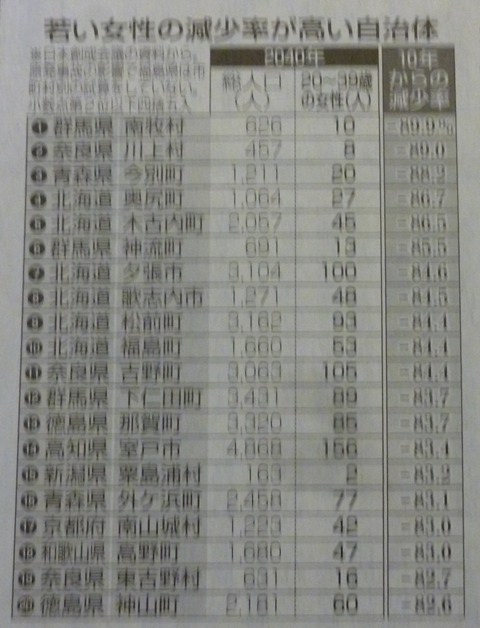 若い女性の減少率が高い自治体
※日本創成会議の資料から。
原発事故の影響で福島県は市
町村別の試算をしていない。
小数点第2位以下四捨五入
2040年
総人口(人)
20〜39歳の女性(人)
10年からの減少率
1 群馬県 南牧村 626 10 −89.9%
2 奈良県 川上村 457 8 −89.0
3 青森県 今別町 1,211 20 −88.2
4 北海道 奥尻町 1,064 27 −86.7
5 北海道 木古内町 2,057 45 −86.5
6 群馬県 神流町 691 13 −85.5
7 北海道 夕張市 3,104 100 −84.6
8 北海道 歌志内市 1,271 48 −84.5
9 北海道 松前町 3,162 93 −84.4
10 北海道 福島町 1,660 53 −84.4
11 奈良県 吉野町 3,063 105 −84.4
12 群馬県 下仁田町 3,431 89 −83.7
13 徳島県 那賀町 3,320 85 −83.7
14 高知県 室戸市 4,868 156 −83.4
15 新潟県 粟島浦村 163 2 −83.2
16 青森県 外ケ浜町 2,458 77 −83.1
17 京都府 南山城村 1,223 42 −83.0
18 和歌山県 高野町 1,680 47 −83.0
19 奈良県 東吉野村 631 16 −82.7
20 徳島県 神山町 2,181 60 −82.6